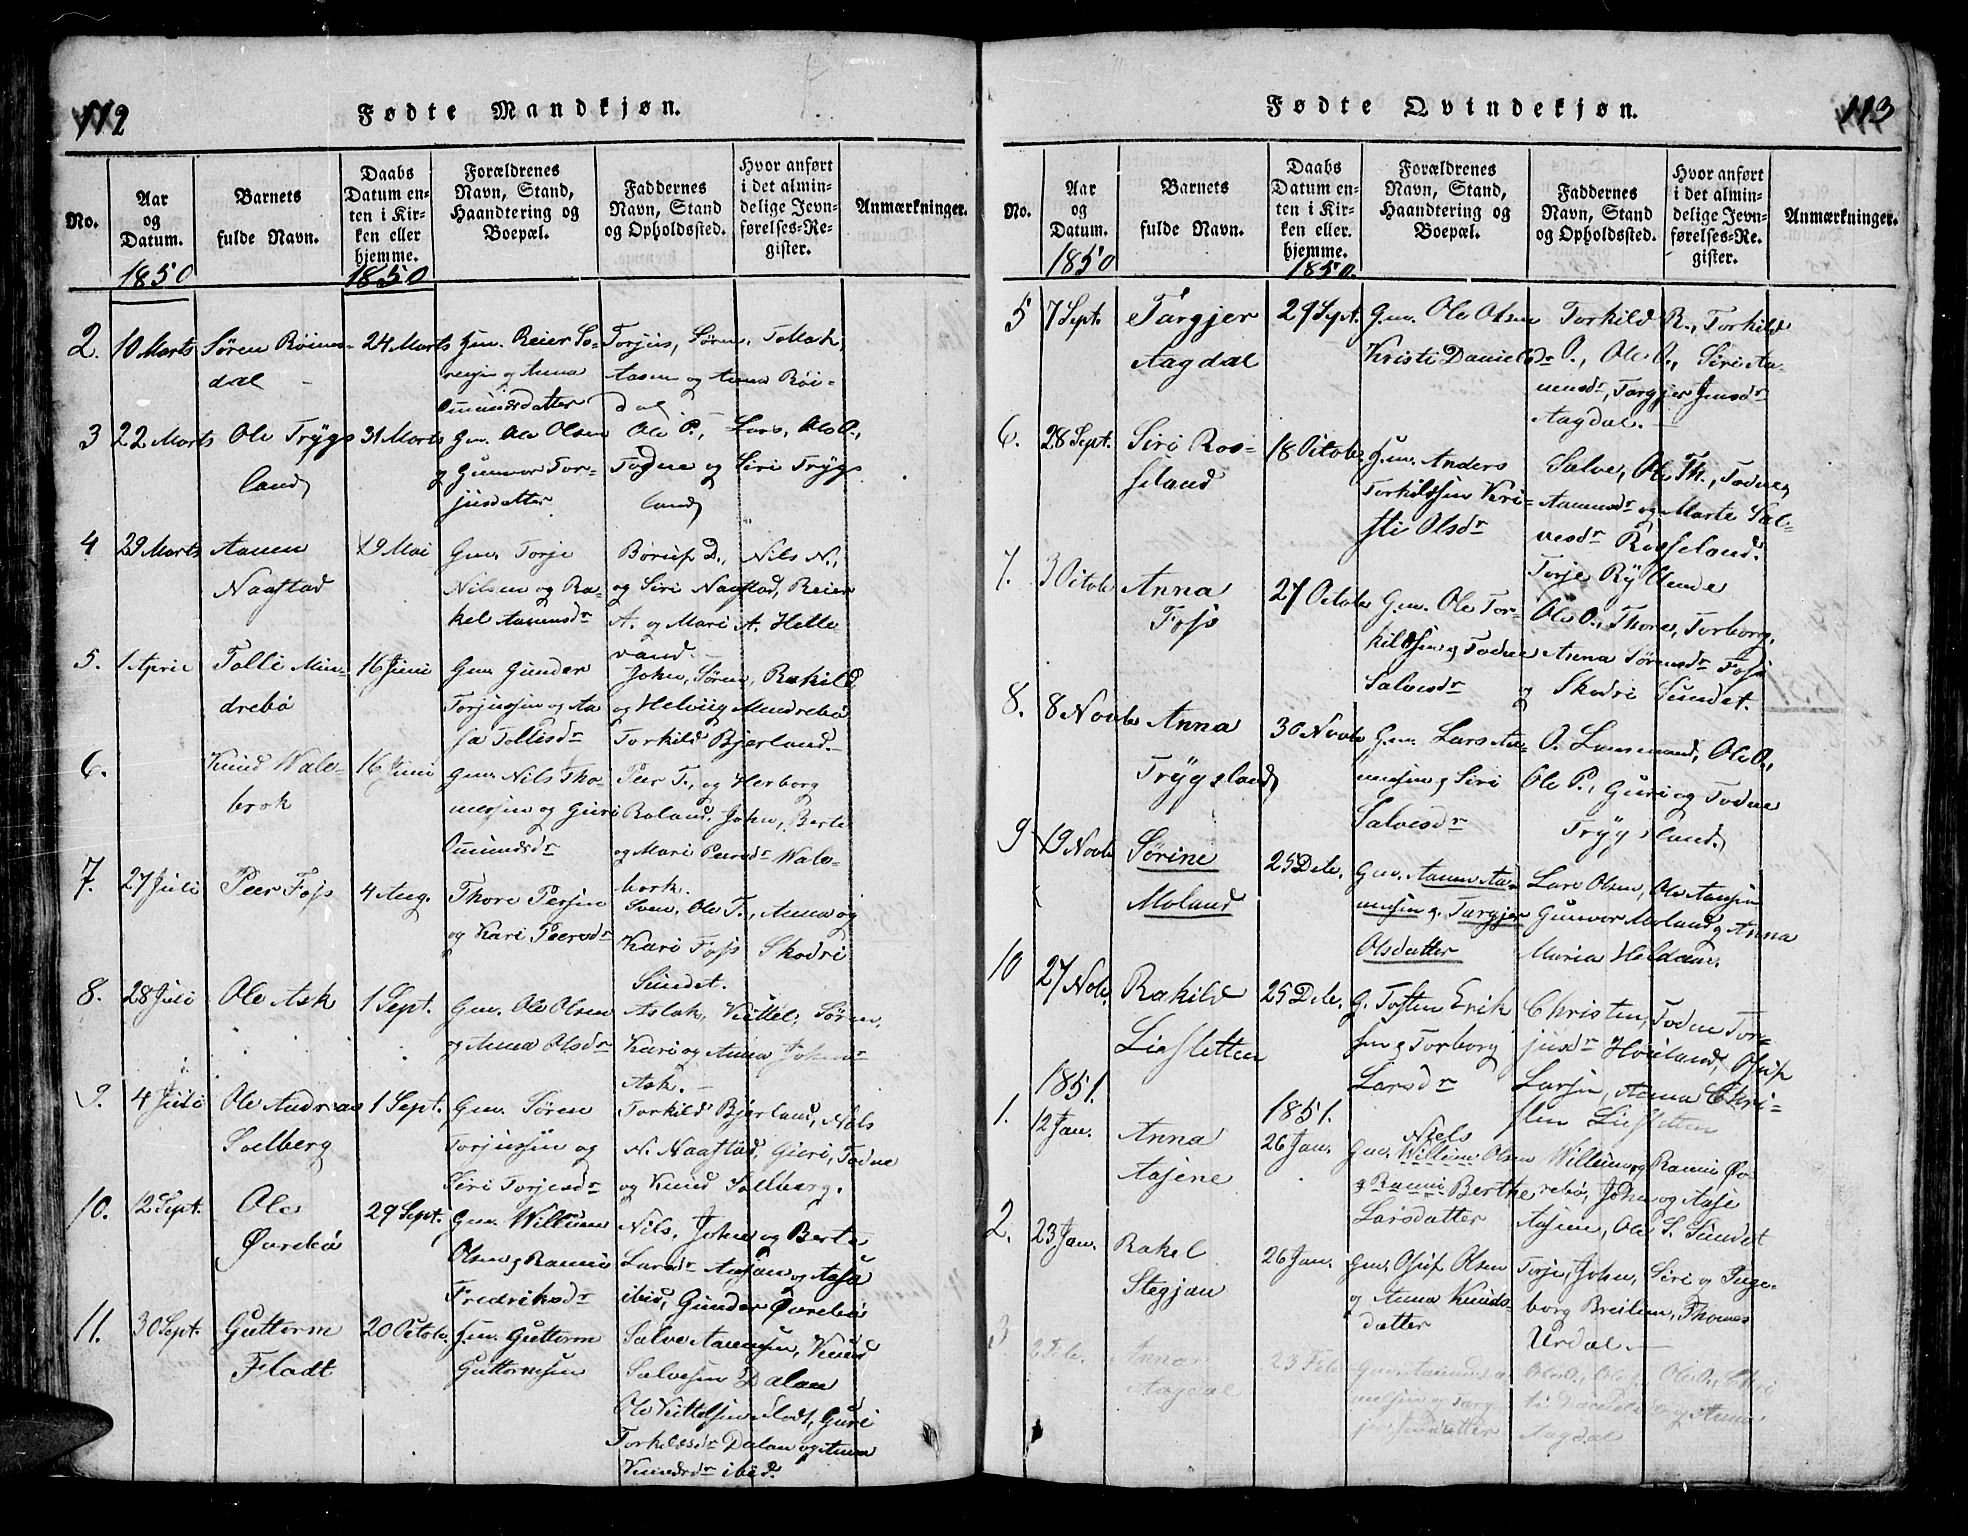 112
Fødte Mandkjøn.
No.
Aar
og
Datum.
1850
Barnets
fulde Navn.
Daabs
Datum en-
ten i Kir-
ken eller
hjemme.
1850
Forældrenes
Navn, Stand,
Haandtering og
Boepæl.
Faddernes
Navn, Stand
og Opholdssted.
Hvor anført
i det almin-
delige Jevn-
førelses-Re-
gister.
Anmærkninger.
2.
10 Marts
Sören Röines-
dal
24 Marts
Gm. Reier Sö-
rensen og Anna
Omundsdatter
Torjus, Sören, Tollak,
Aasen og Anna Röi-
dal
3
22 Marts
Ole Trygs
land
31 Marts
Gm. Ole Olsen
og Gunvor Tor-
jusdatter
Ole P., Lars, Ole O.,
Todne og Siri Trygs
land
4
29 Marts
Aanen
Naastad
19 Mai
Gm. Torje
Nilsen og Ra-
kel Aanensdr
Börup D., Nils N.,
og Siri Naastad, Reier
A. og Mari A. Helle
vand.
5.
1 April
Tolli Min-
drebö
16 Juni
Gm. Gunder
Torjussen og Aa
sa Tollisdr
John, Sören, Rakild
og Helvig Mindrebö
Torkild Bjerland.
6.
Knud Wale-
brok
16 Juni
Gm. Nils Tho-
messen og Guri
Omundsdr
Peer T., og Herborg
Roland, John, Berte
og Mari Peersdr Wale-
bork.
7.
27 Juli
Peer Foss
4 Aug.
Thore Persen
og Kari Peersdr
Sven, Ole T., Anna og
Kari Foss Skodri
Sundet.
8.
28 Juli
Ole Ask
1 Sept.
Gm. Ole Olsen
og Anna Olsdr
Aslak, Kittel, Sören,
Kari og Anna Johnsdr
Ask.
9.
4 Juli
Ole Andreas
Solberg
1 Sept.
Gm. Sören
Torjussen og
Siri Torjesdr
Torkild Bjerland, Nils
N. Naastad, Guri, Todne
og Knud Solberg.
10.
12 Sept.
Ole
Øvrebö
29 Sept.
Gm. Willum
Olsen og Rannei
Fredriksdr
Nils, John og Berte
Larsdr Aasen og Aasa
ibid, Gunder Øvrebö
11.
30 Sept.
Guttorm
Flodt
20 Octob.
Gm. Guttorm
Guttormsen
Salve Aanensen, Knud
Salvesen Dalan
Ole Kittelsen Flodt, Guri
Torkildsdr Dalan og Anna
Knudsdr ibid.
113
Fødte Qvindekjøn.
No.
Aar
og
Datum.
1850
Barnets
fulde Navn.
Daabs
Datum en-
ten i Kir-
ken eller
hjemme.
1850.
Forældrenes
Navn, Stand,
Haandtering og
Boepæl.
Faddernes
Navn, Stand
og Opholdssted.
Hvor anført
i det almin-
delige Jevn-
førelses-Re-
gister.
Anmærkninger.
5
7 Sept.
Targjer
Aagdal
29 Sept.
Gm. Ole Olsen
Kristi Danielsdr
Torkild R., Torkild
O., Ole O., Siri Aa-
nensdr, Targjer Jensdr
Aagdal.
6.
28 Sept.
Siri Ros-
seland
18 Octob.
Gm. Anders
Torkildsen Kri-
sti Olsdr
Salve, Ole Th., Todne,
Aanensdr og Marte Sal-
vesdr Rosseland.
7.
3 Octob
Anna
Foss
27 Octob
Gm. Ole Tor-
kildsen og Todne
Salvesdr
Torje Ryllende
Ole O., Thore, Torborg,
Anna Sörensdr Foss
og Skodri Sundet.
8.
8 Novb
Anna
Trygsland
30 Novb
Gm. Lars Aa-
nensen og Siri
Salvesdr
O. Lunemand, Ole O.,
Ole P., Guri og Todne
Trygsland.
9
19 Novb
Sörine
Moland
25 Dcb.
Gm. Aanen Aa-
nensen og Targjer
Olsdatter
Lars Olsen, Ole Aansen
Gunvor Moland, Anna
Maria Heldan.
10
27 Nob.
Rakild
Liesletten
25 Dcb.
G. Tosten Erik
sen og Torborg
Larsdr
Christen, Todne Tor-
jusdr Höiland, Osuf
Larsen, Anna Chri-
sten Liesletten
1851.
1851.
1.
12 Jan.
Anna
Aasene
26 Jan.
Niels
Gm. Willum Olsen
og Rannei Berthe
Larsdatter
Willum og Rannei Øv-
rebö, John og Aase
Aasene, Ole S. Sundet
2.
23 Jan.
Rakel
Stegjan
26 Jan.
Gm. Osuf Olsen
og Anna Knuds-
datter
Torje, John, Siri og Inge-
borg Breilien, Thomas
Urdal.
3
2 Feb.
Anna
Aagdal
23 Feb
Gm. Aanen Aa
nensen og Targ
jer Jensdatter
Ole O., Ole O., Chri
og Anna
Aagdal